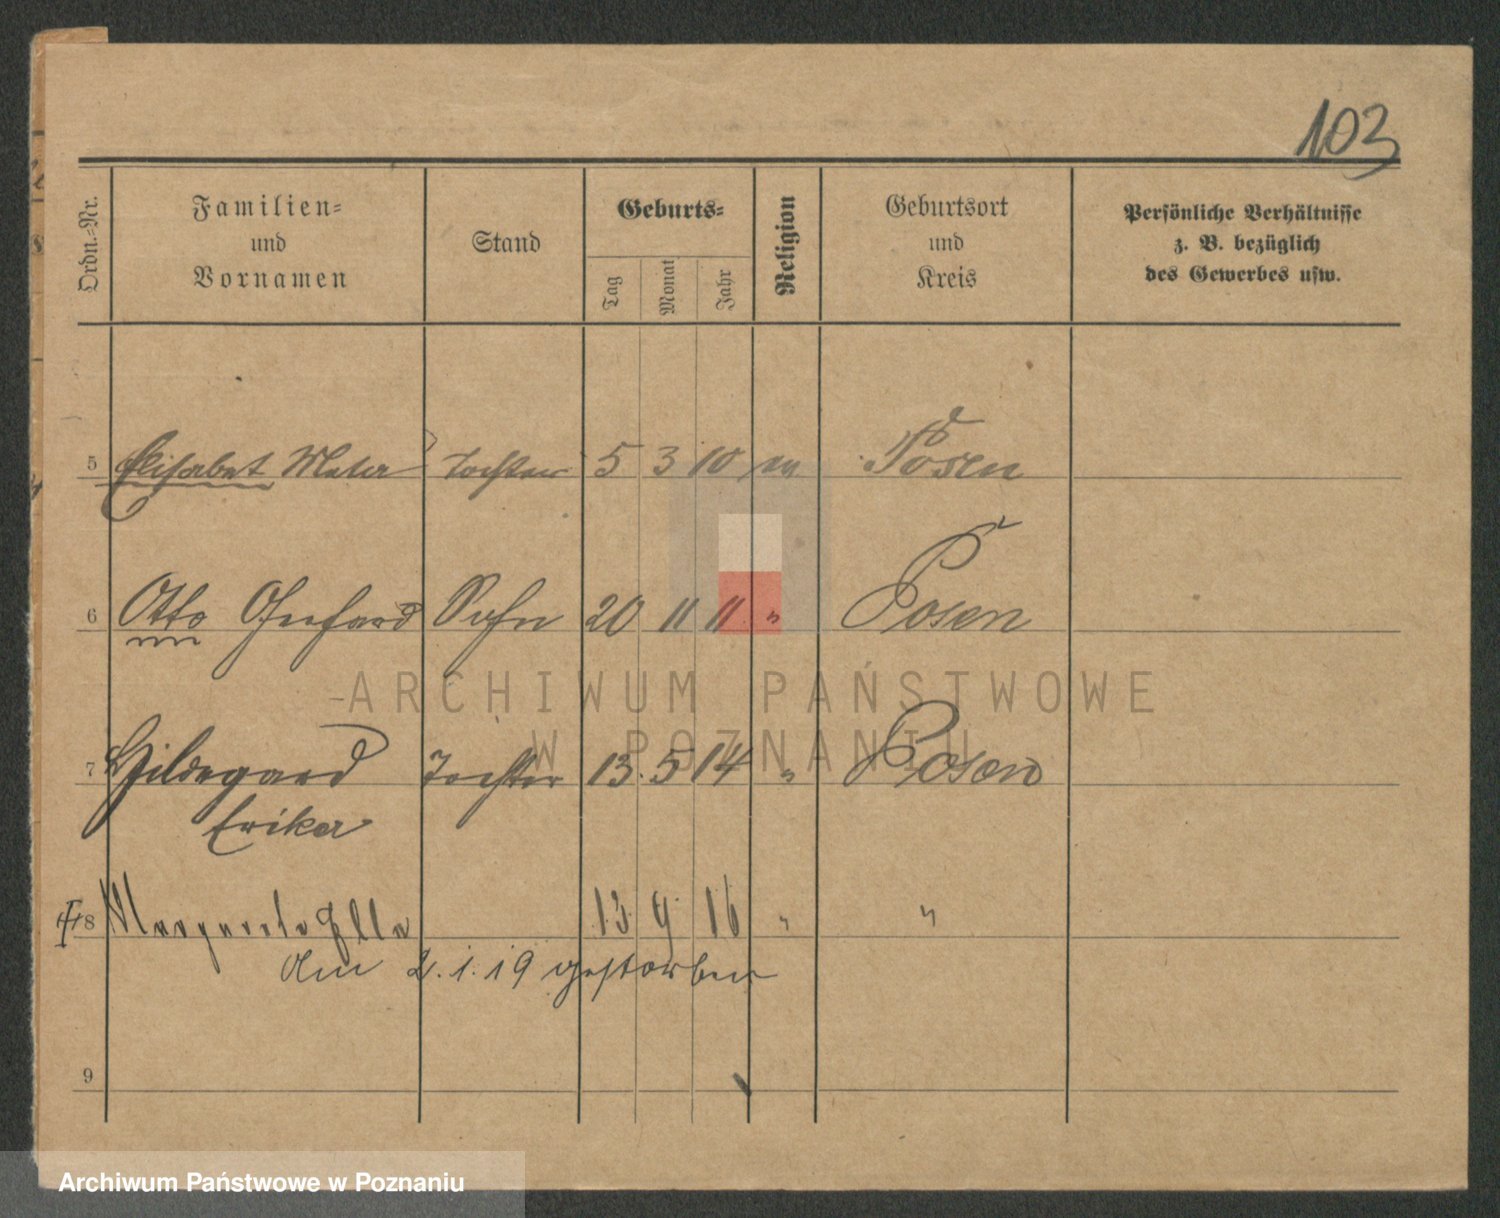 103
Ordn.-Nr.
Familien-
und
Vornamen
Stand
Geburts-
Tag
Monat
Jahr
Religion
Geburtsort
und
Kreis
Persönliche Verhältnisse
z. B. bezüglich
des Gewerbes usw.
5 Elisabet Meta Tochter 5 3 10 ev Posen
6 Otto Gerhard Sohn 20 11 11 " Posen
ARCHIWUM PAŃSTWOWE
W POZNANIU
7 Hildegard Tochter 13. 5 14 " Posen
Erika
8 Margarete Ella 13. 9. 16 " "
Am 2.1.19 gestorben
9
Archiwum Państwowe w Poznaniu